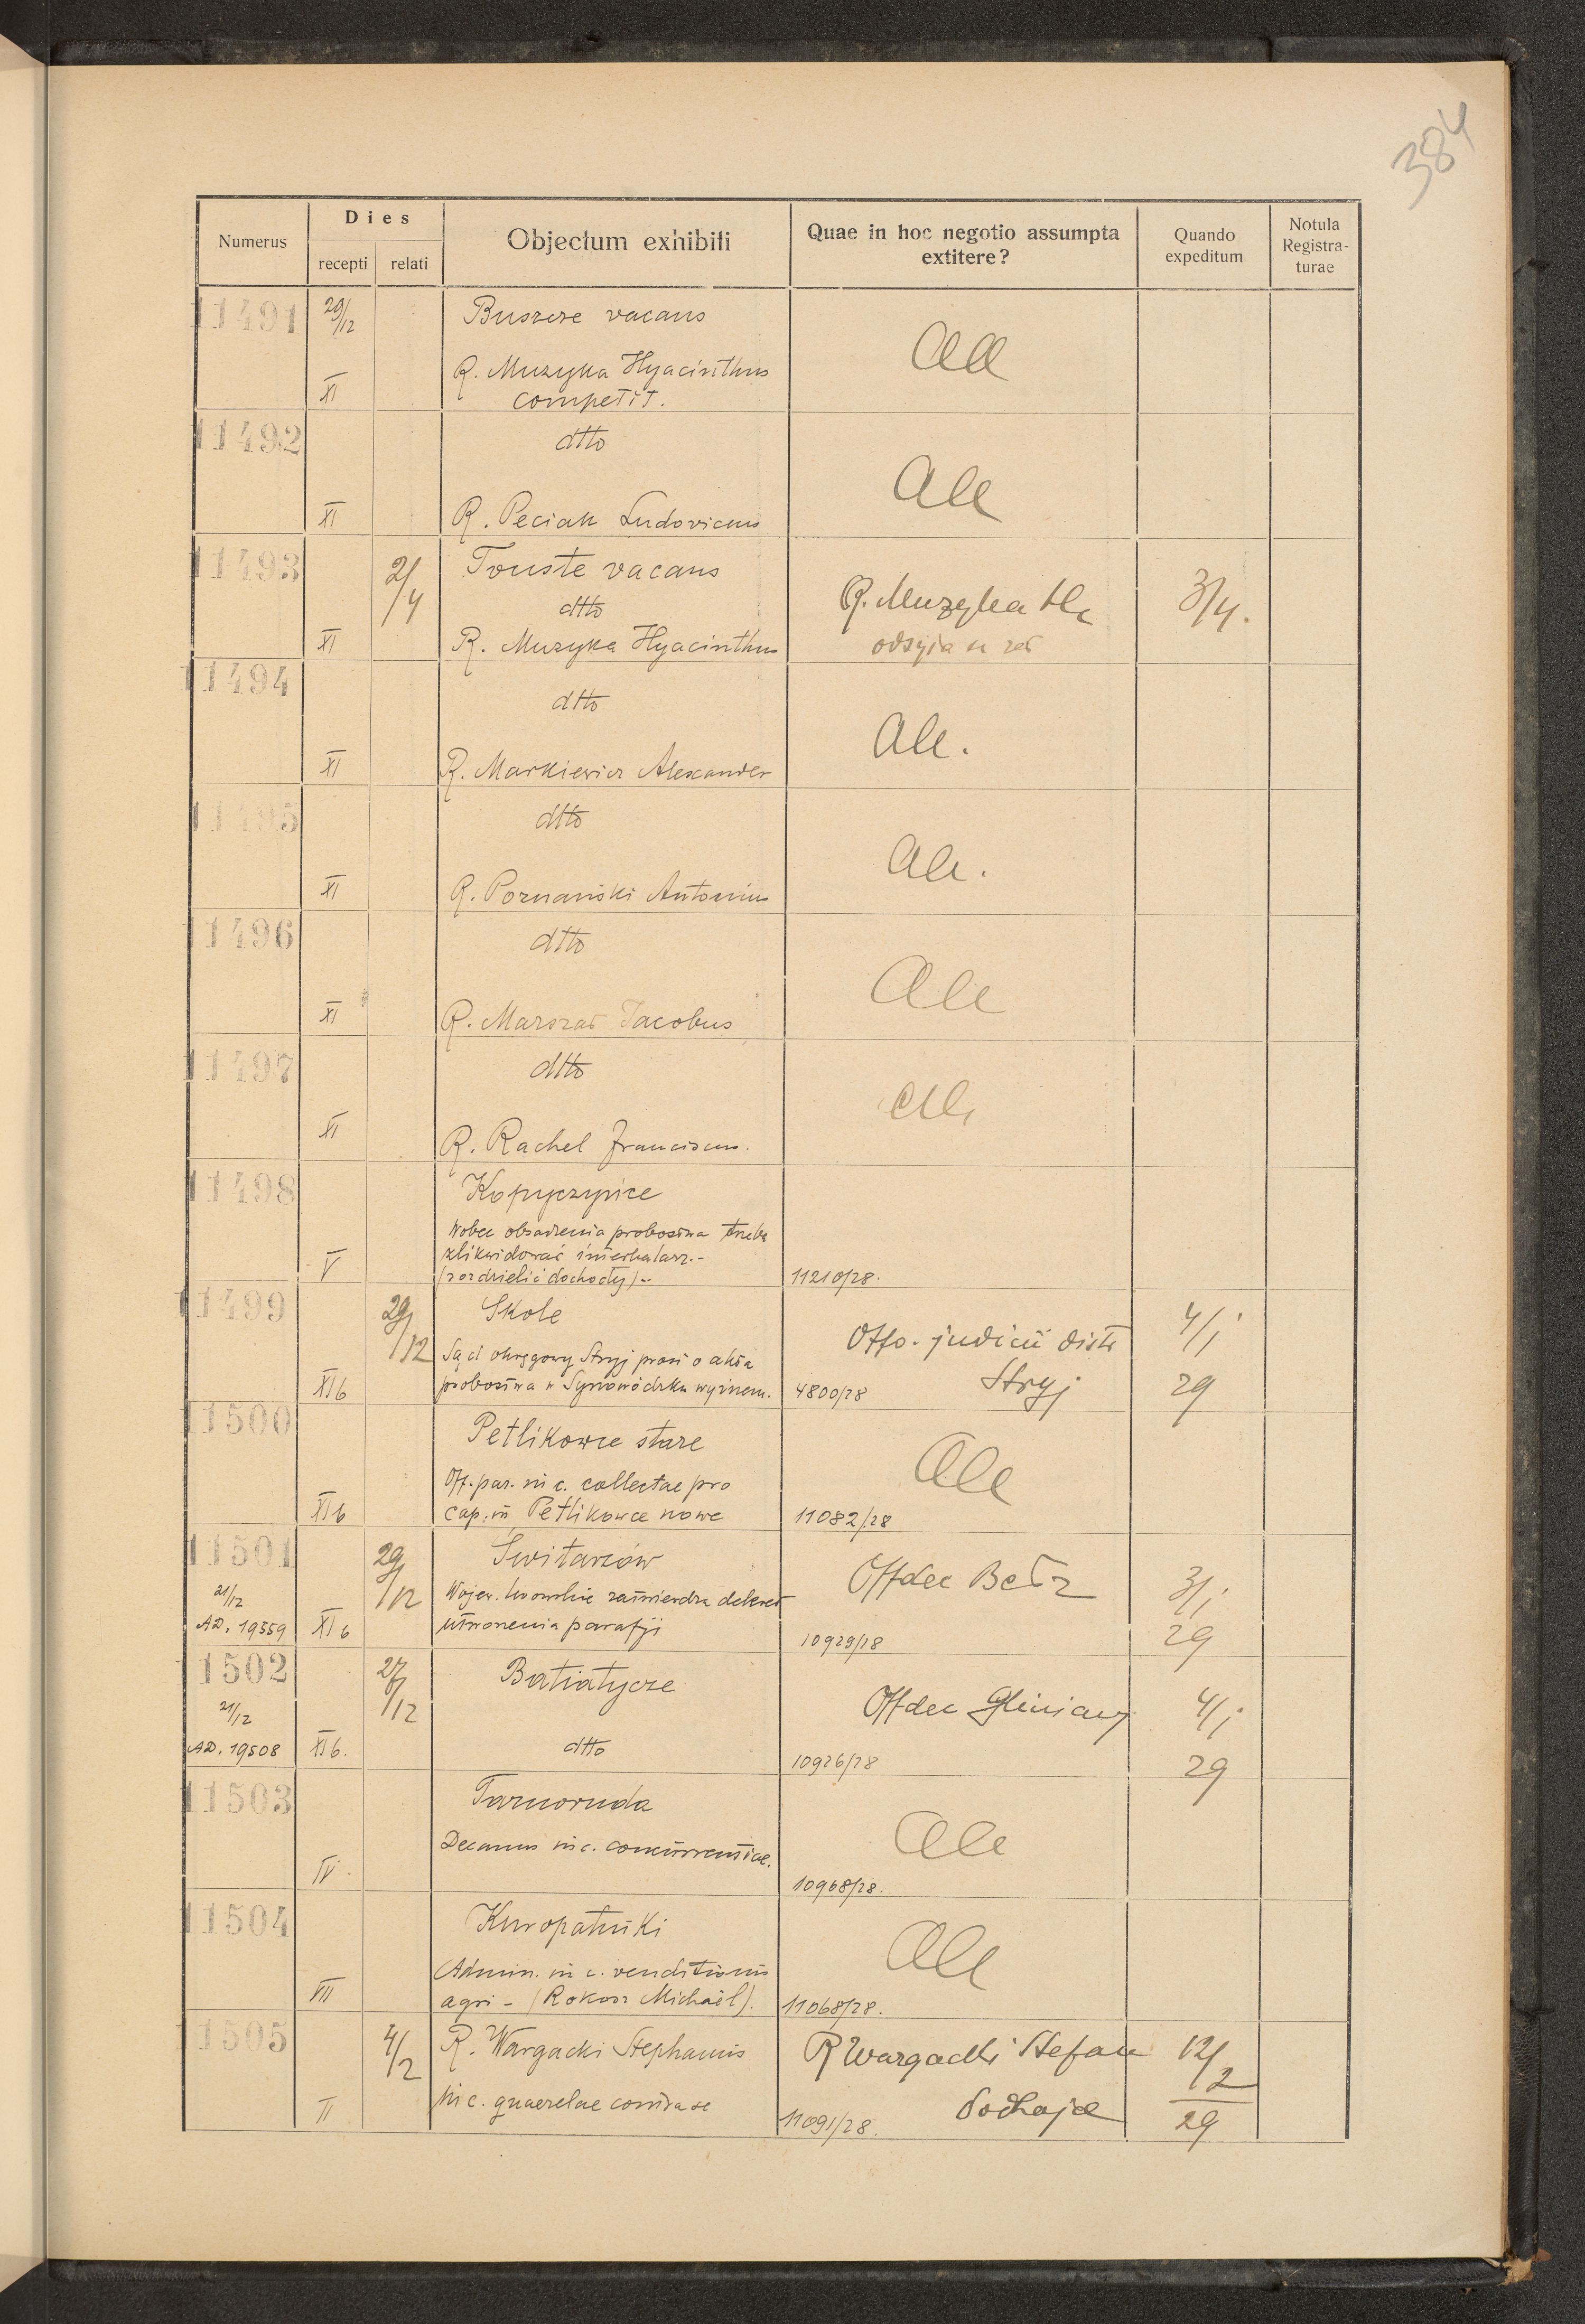 384
Numerus
Dies
recepti
relati
Objectum exhibiti
Quae in hoc negotio assumpta
extitere?
Quando
expeditum
Notula
Registra-
turae
11491
29/12
XI
Buszcze vacans
R. Muzyka Hyacinthus
competit.
11492
XI
dtto
R. Peciak Ludovicus
11493
XI
2/4
Touste vacans
dtto
R. Muzyka Hyacinthus
R. Muzyka
3/4.
11494
XI
dtto
R. Markiewicz Alexander
11495
XI
dtto
R. Poznański Antonius
11496
XI
dtto
R. Marszał Jacobus
11497
XI
dtto
R. Rachel Franciscus.
11498
V
Kopyczyńce
Wobec obsadzenia probostwa trzeba
zlikwidować interkalarz.-
(rozdzielić dochody).-
11210/28.
11499
XIb
29/12
Skole
Sąd okręgowy Stryj prosi o akta
probostwa w Synowódzku wyżnem.
4800/28
Offo. judicii distr
Stryj
4/i
29
11500
XIb
Petlikowce stare
Off. par. in c. collectae pro
cap. in Petlikowce nowe
11082/28
11501
21/12
AD. 19559
XIb
29/12
Świtarzów
Wojew. lwowskie zatwierdza dekret
utworzenia parafji
10929/28
Offdec Bełz
3/i
29
11502
21/12
AD. 19508
XIb.
27/12
Batiatycze
dtto
10926/28
Offdec Gliniany
4/i
29
11503
IV
Tarnoruda
Decanus in c. concurrentiae.
10968/28.
11504
VII
Kuropatniki
Admin. in c. venditionis
agri - (Rokosz Michaël).
11068/28.
11505
II
4/2
R. Wargacki Stephanus
in c. quaerelae contra se
11091/28.
R Wargacki Stefan
12/2
29